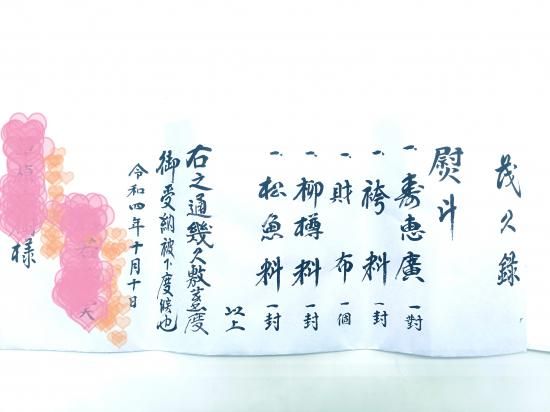 茂久録
熨斗
一、壽恵廣 一對
一、袴料 一封
一、財布 一個
一、柳樽料 一封
一、松魚料 一封
以上
右之通幾久敷芽出度
御受納被下度候也
令和四年十月十日
様